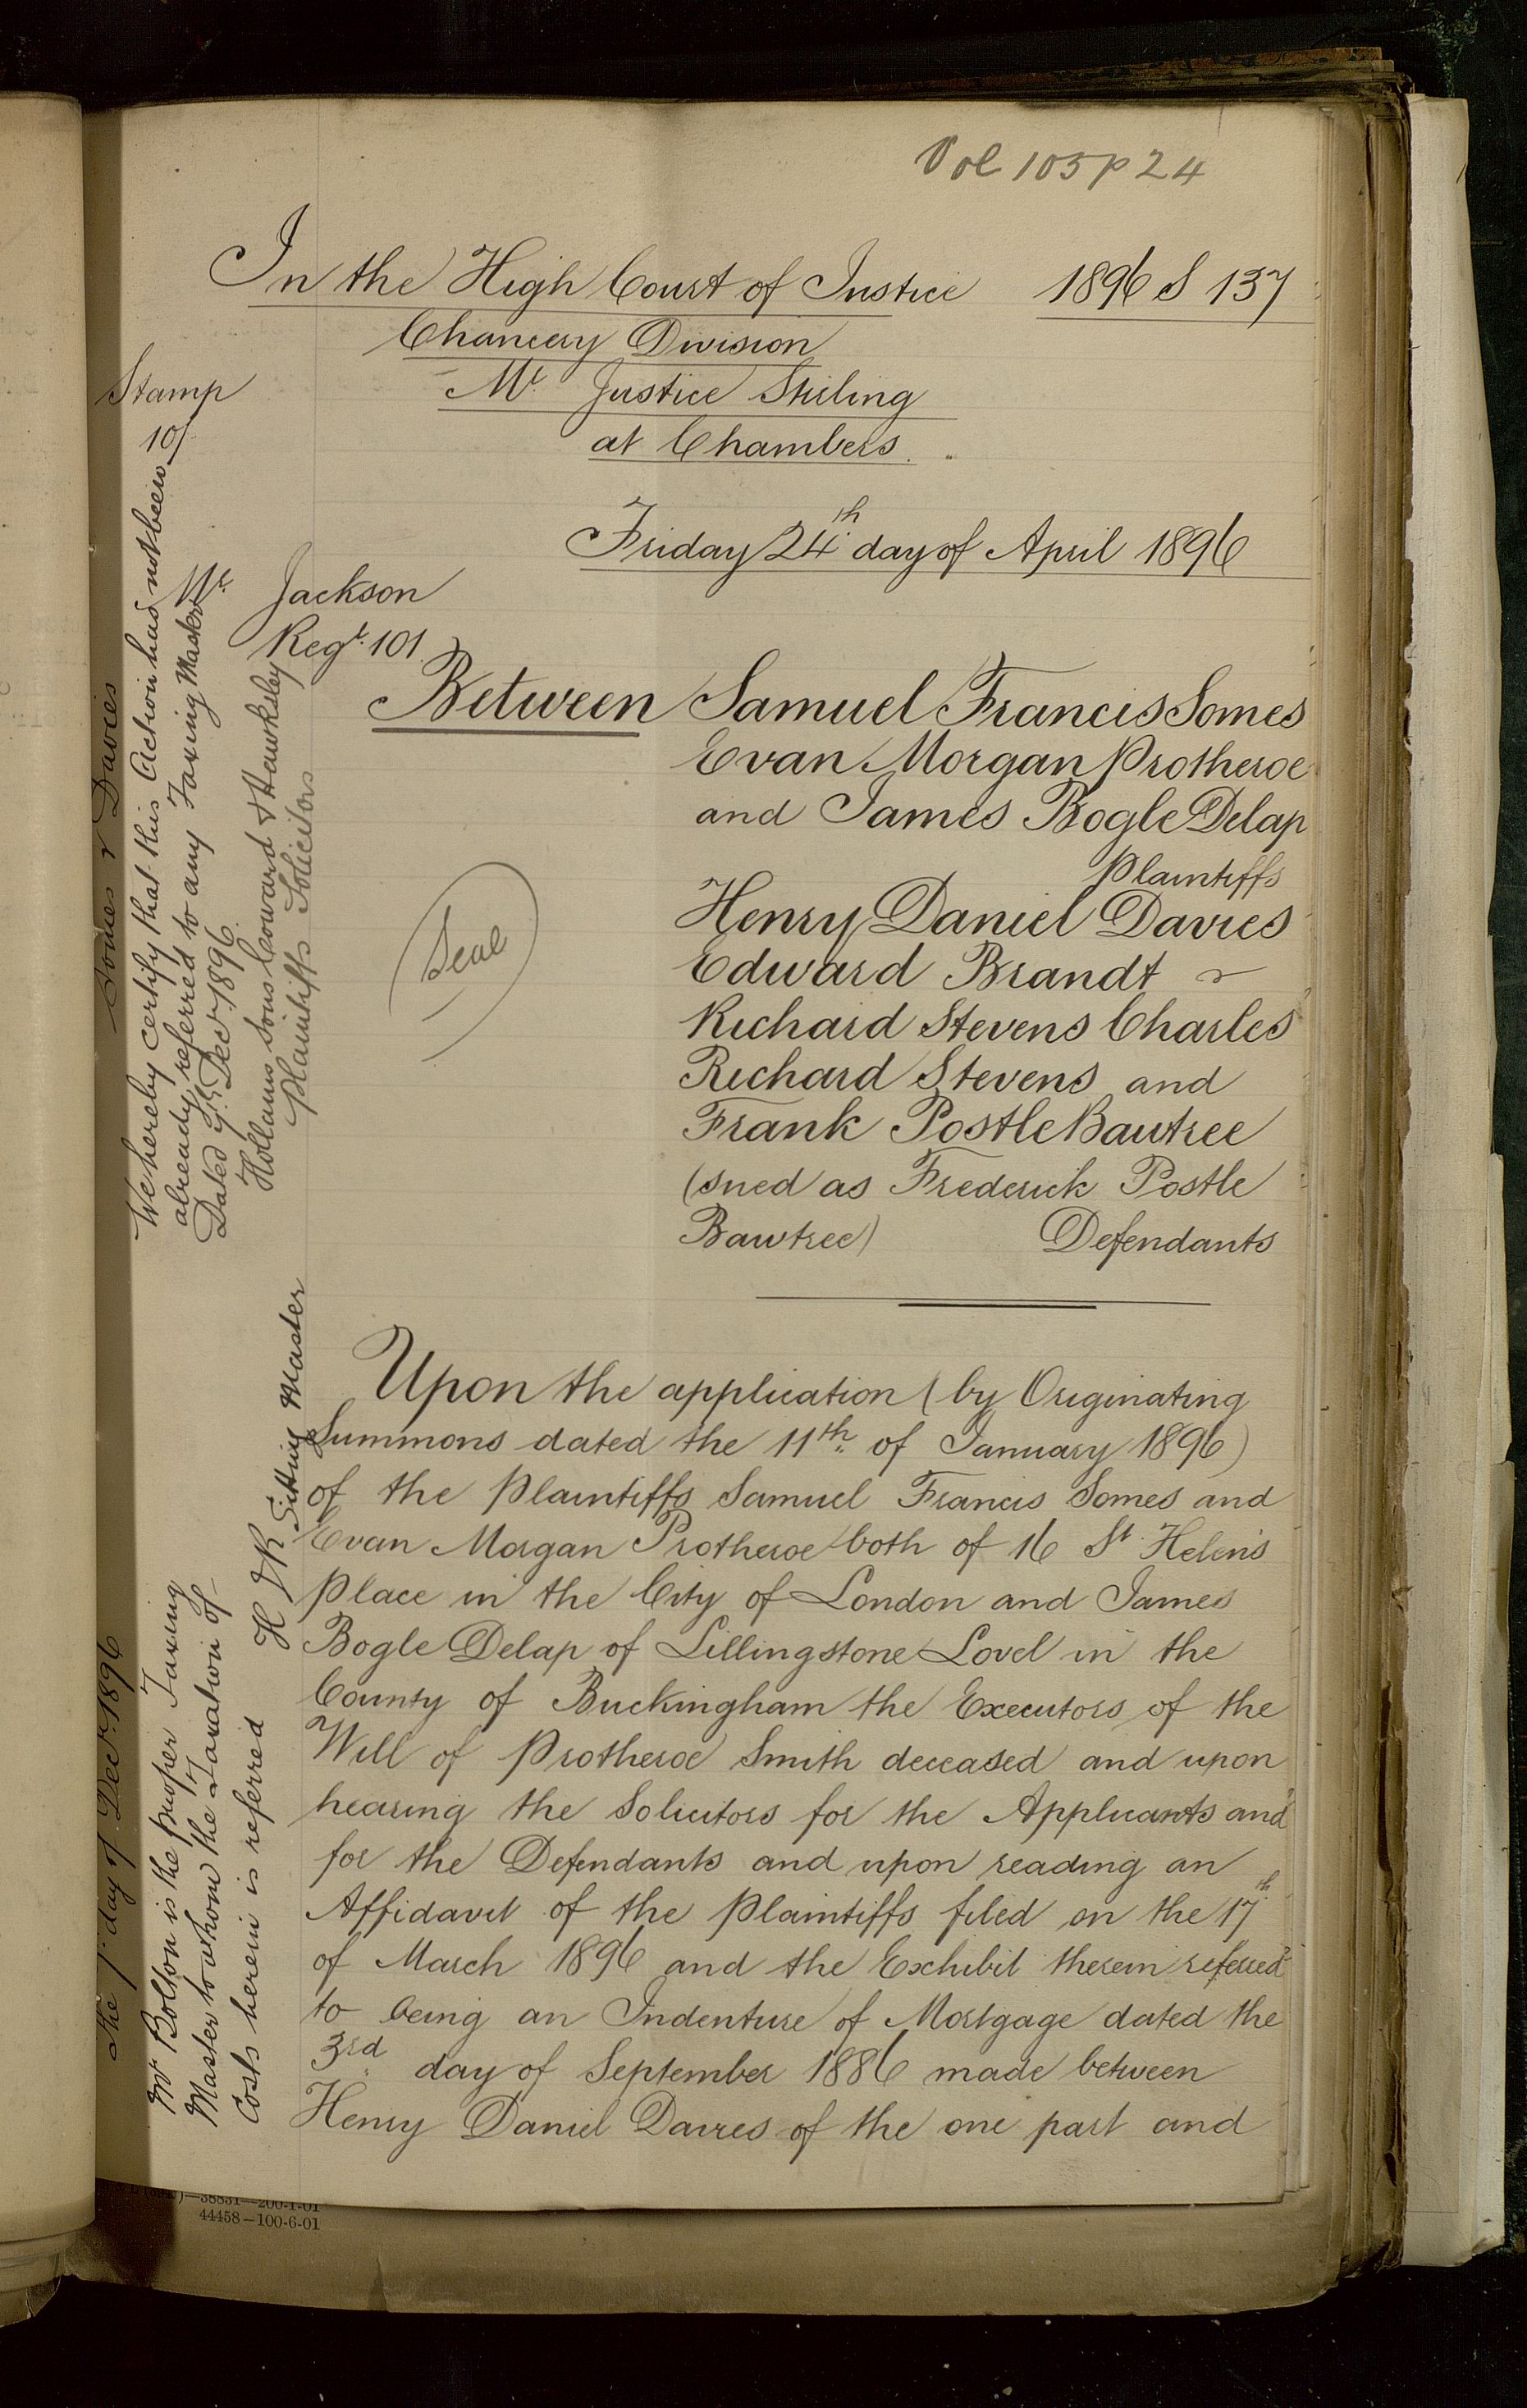 Vol 105 p 24
In the High Court of Justice 1896 S 137
Chancery Division
Mr Justice Stirling
at Chambers.
Stamp
10/
Friday 24th day of April 1896
Mr. Jackson
Regr. 101
Between Samuel Francis Somes
Evan Morgan Protheroe
and James Bogle Delap
Plaintiffs
Henry Daniel Davies
Edward Brandt
Richard Stevens Charles
Richard Stevens and
Frank Postle Bawtree
(sued as Frederick Postle
Bawtree) Defendants
Seal
Somes v Davies
We hereby certify that this Action has not been
already referred to any Taxing Master
Dated Decr. 1896.
Hollams Sons Coward & Hawksley
Plaintiffs Solicitors
Upon the application (by Originating
Summons dated the 11th of January 1896)
of the Plaintiffs Samuel Francis Somes and
Evan Morgan Protheroe both of 16 St Helen's
Place in the City of London and James
Bogle Delap of Lillingstone Lovel in the
County of Buckingham the Executors of the
Will of Protheroe Smith deceased and upon
hearing the Solicitors for the Applicants and
for the Defendants and upon reading an
Affidavit of the Plaintiffs filed on the 17th
of March 1896 and the Exhibit therein referred
to being an Indenture of Mortgage dated the
3rd day of September 1886 made between
Henry Daniel Davies of the one part and
The day of Decr. 1896
Mr Bolton is the proper Taxing
Master to whom the Taxation of
Costs herein is referred
H JR Sitting Master
38831—200-1-01
44458—100-6-01